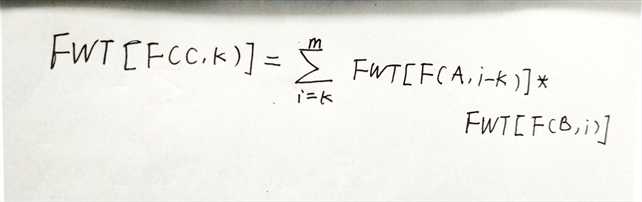 FWT[F(C,k)] = \sum_{i=k}^{m} FWT[F(A,i-k)]*
FWT[F(B,i)]